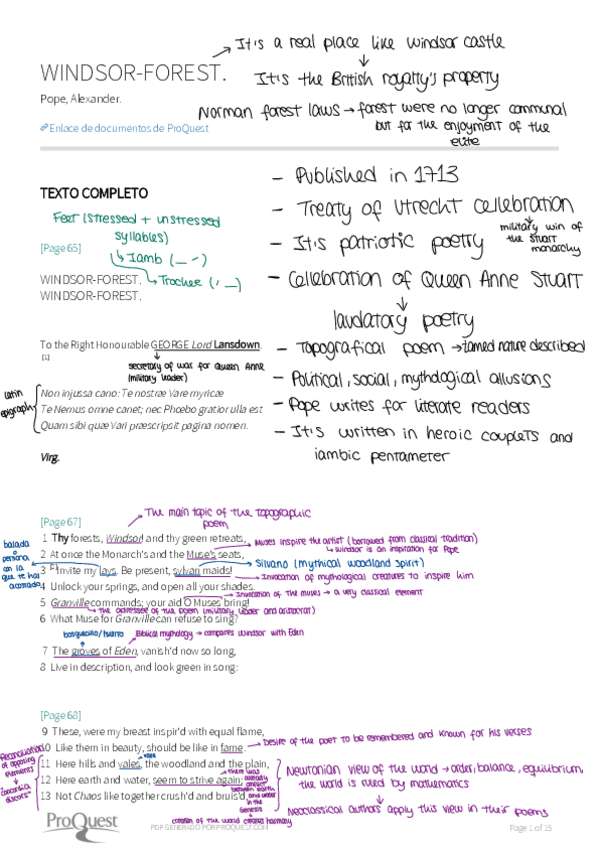 → It's a real place like windsor castle
WINDSOR-FOREST.
It's the British royalty's property
Pope, Alexander.
Norman forest laws → forest were no longer communal
but for the enjoyment of the
elite
Enlace de documentos de ProQuest
- Published in 1713
TEXTO COMPLETO
- Treaty of Utrecht cellebration
military win of
the Stuart
monarchy
Feet (stressed + unstressed
syllables)
[Page 65]
- It's patriotic poetry
Iamb (_ -)
WINDSOR-FOREST.
Trochee (, _)
- Cellebration of Queen Anne Stuart
WINDSOR-FOREST.
laudatory poetry
To the Right Honourable GEORGE Lord Lansdown.
[1]
- Topografical poem → tamed nature described
secretary of war for Queen Anne
(military leader)
- Political, social, mythological allusions
latin
epigraph
Non injussa cano: Te nostræ Vare myricæ
Te Nemus omne canet; nec Phœbo gratior ulla est
- Pope writes for literate readers
Quam sibi quæ Vari præscripsit pagina nomen.
- It's written in heroic couplets and
iambic pentameter
Virg.
The main topic of the topographic
poem
[Page 67]
1 Thy forests, Windsor! and thy green retreats,
Muses inspire the artist (borrowed from classical tradition)
windsor is an inspiration for Pope
2 At once the Monarch's and the Muse's seats,
Silvano (mythical woodland spirit)
balada
3 [2] Invite my lays. Be present, sylvan maids!
Invocation of mythological creatures to inspire him
4 Unlock your springs, and open all your shades.
Invocation of the muses → a very classical element
5 Granville commands; your aid O Muses bring!
6 What Muse for Granville can refuse to sing?
bosquecillo/huerto
Biblical mythology → compares windsor with Eden
7 The groves of Eden, vanish'd now so long,
8 Live in description, and look green in song:
[Page 68]
9 These, were my breast inspir'd with equal flame,
10 Like them in beauty, should be like in fame.
Desire of the poet to be remembered and known for his verses
Reconciliation
of opposing
elements
"concordia
discors"
11 Here hills and vales, the woodland and the plain,
12 Here earth and water, seem to strive again;
13 Not Chaos like together crush'd and bruis'd,
Newtonian view of the world → order, balance, equilibrium,
the world is ruled by mathematics
Neoclassical authors apply this view in their poems
creation of the world creates harmony
ProQuest
PDF GENERADO POR PROQUEST.COM
Page 1 of 15